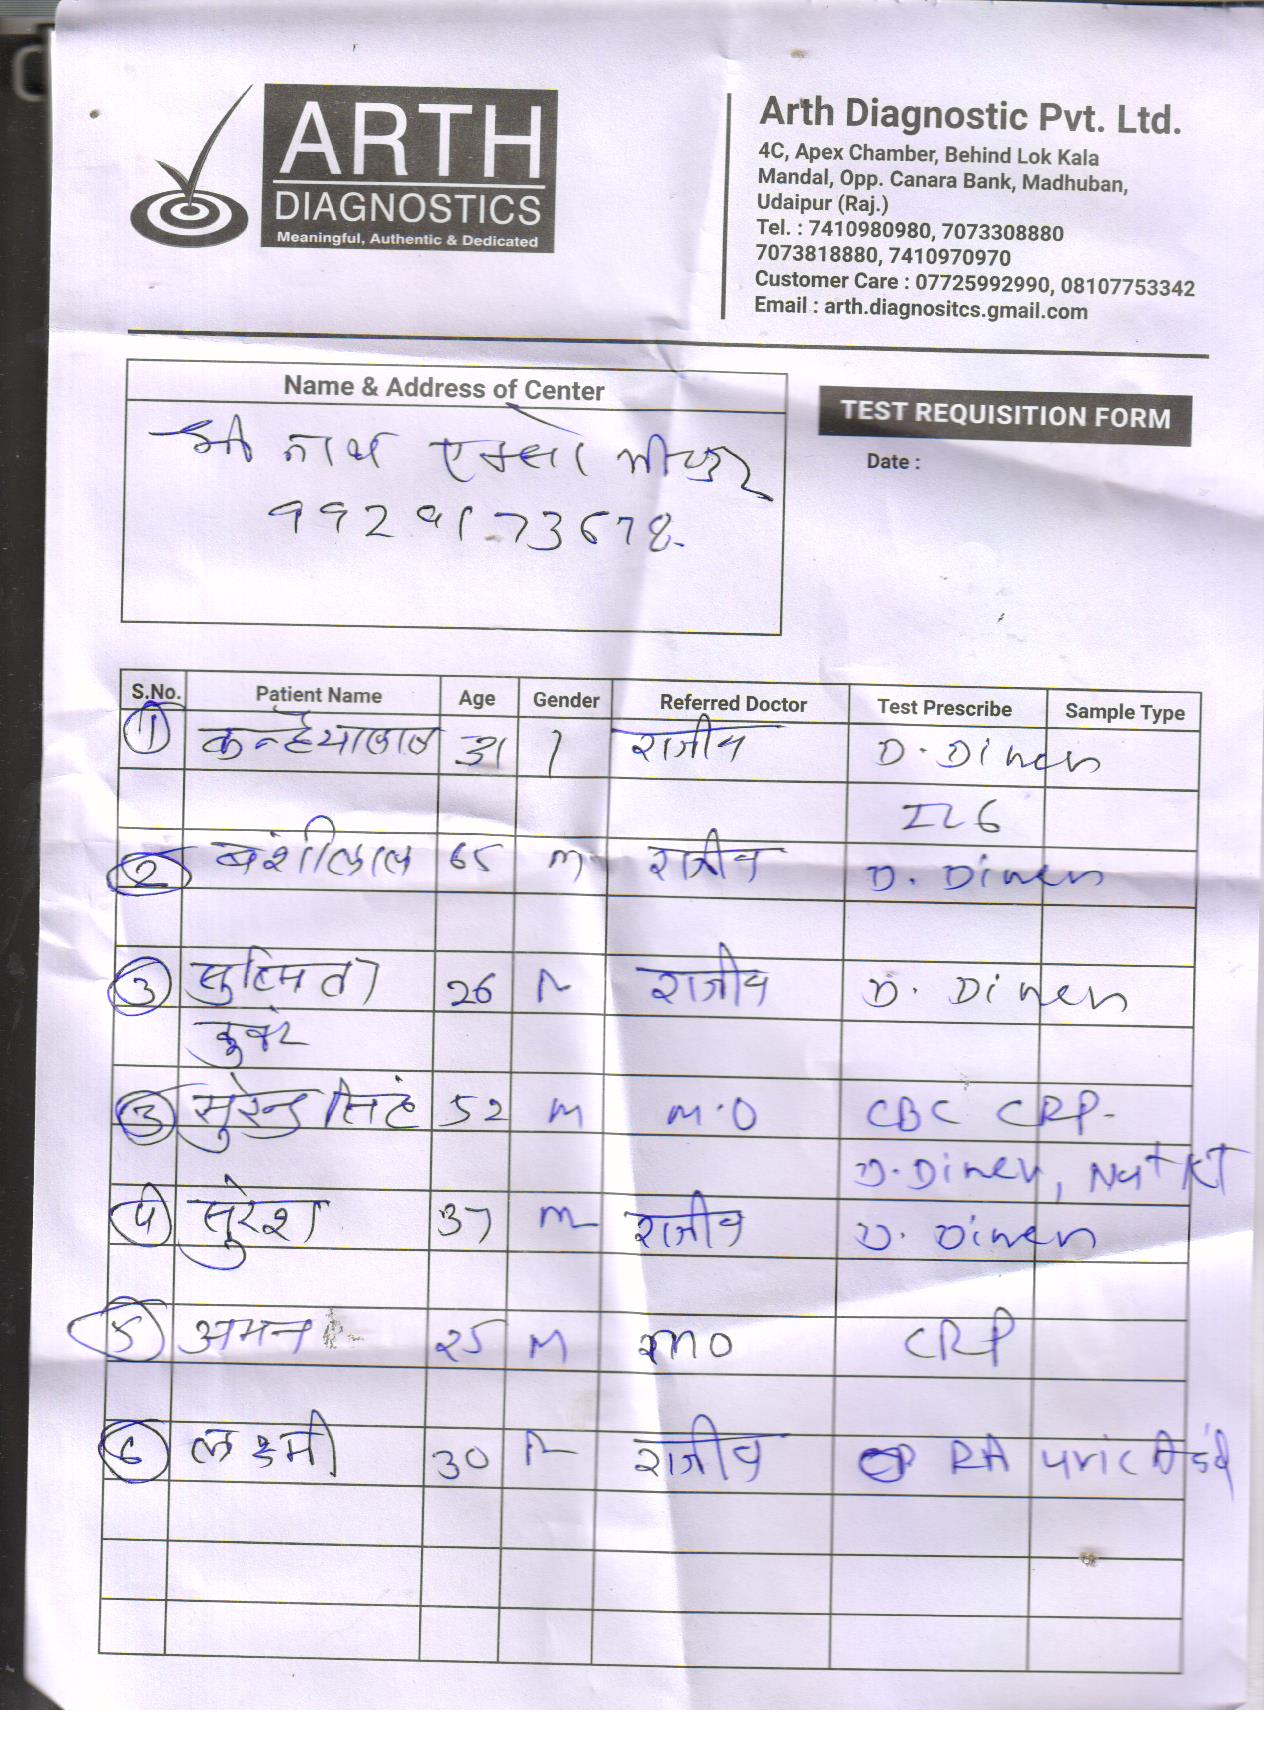 ARTH
DIAGNOSTICS
Meaningful, Authentic & Dedicated
Arth Diagnostic Pvt. Ltd.
4C, Apex Chamber, Behind Lok Kala
Mandal, Opp. Canara Bank, Madhuban,
Udaipur (Raj.)
Tel. : 7410980980, 7073308880
7073818880, 7410970970
Customer Care : 07725992990, 08107753342
Email : arth.diagnositcs.gmail.com
Name & Address of Center
श्री नाथ एक्सरे
TEST REQUISITION FORM
Date :
S.No. Patient Name Age Gender Referred Doctor Test Prescribe Sample Type
1 कन्हैयालाल 31 राजीव D. Dimer
IL6
2 बंशीलाल 65 M राजीव D. Dimer
3 26 राजीव D. Dimer
कुवंर
3 सुरेन्द्र सिंह 52 M M.O CBC CRP
D. Dimer, Na+ K+
4 सुरेश 37 M राजीव D. Dimer
5 अमन 25 M MO CRP
6 लक्ष्मी 30 राजीव RA Uric Acid